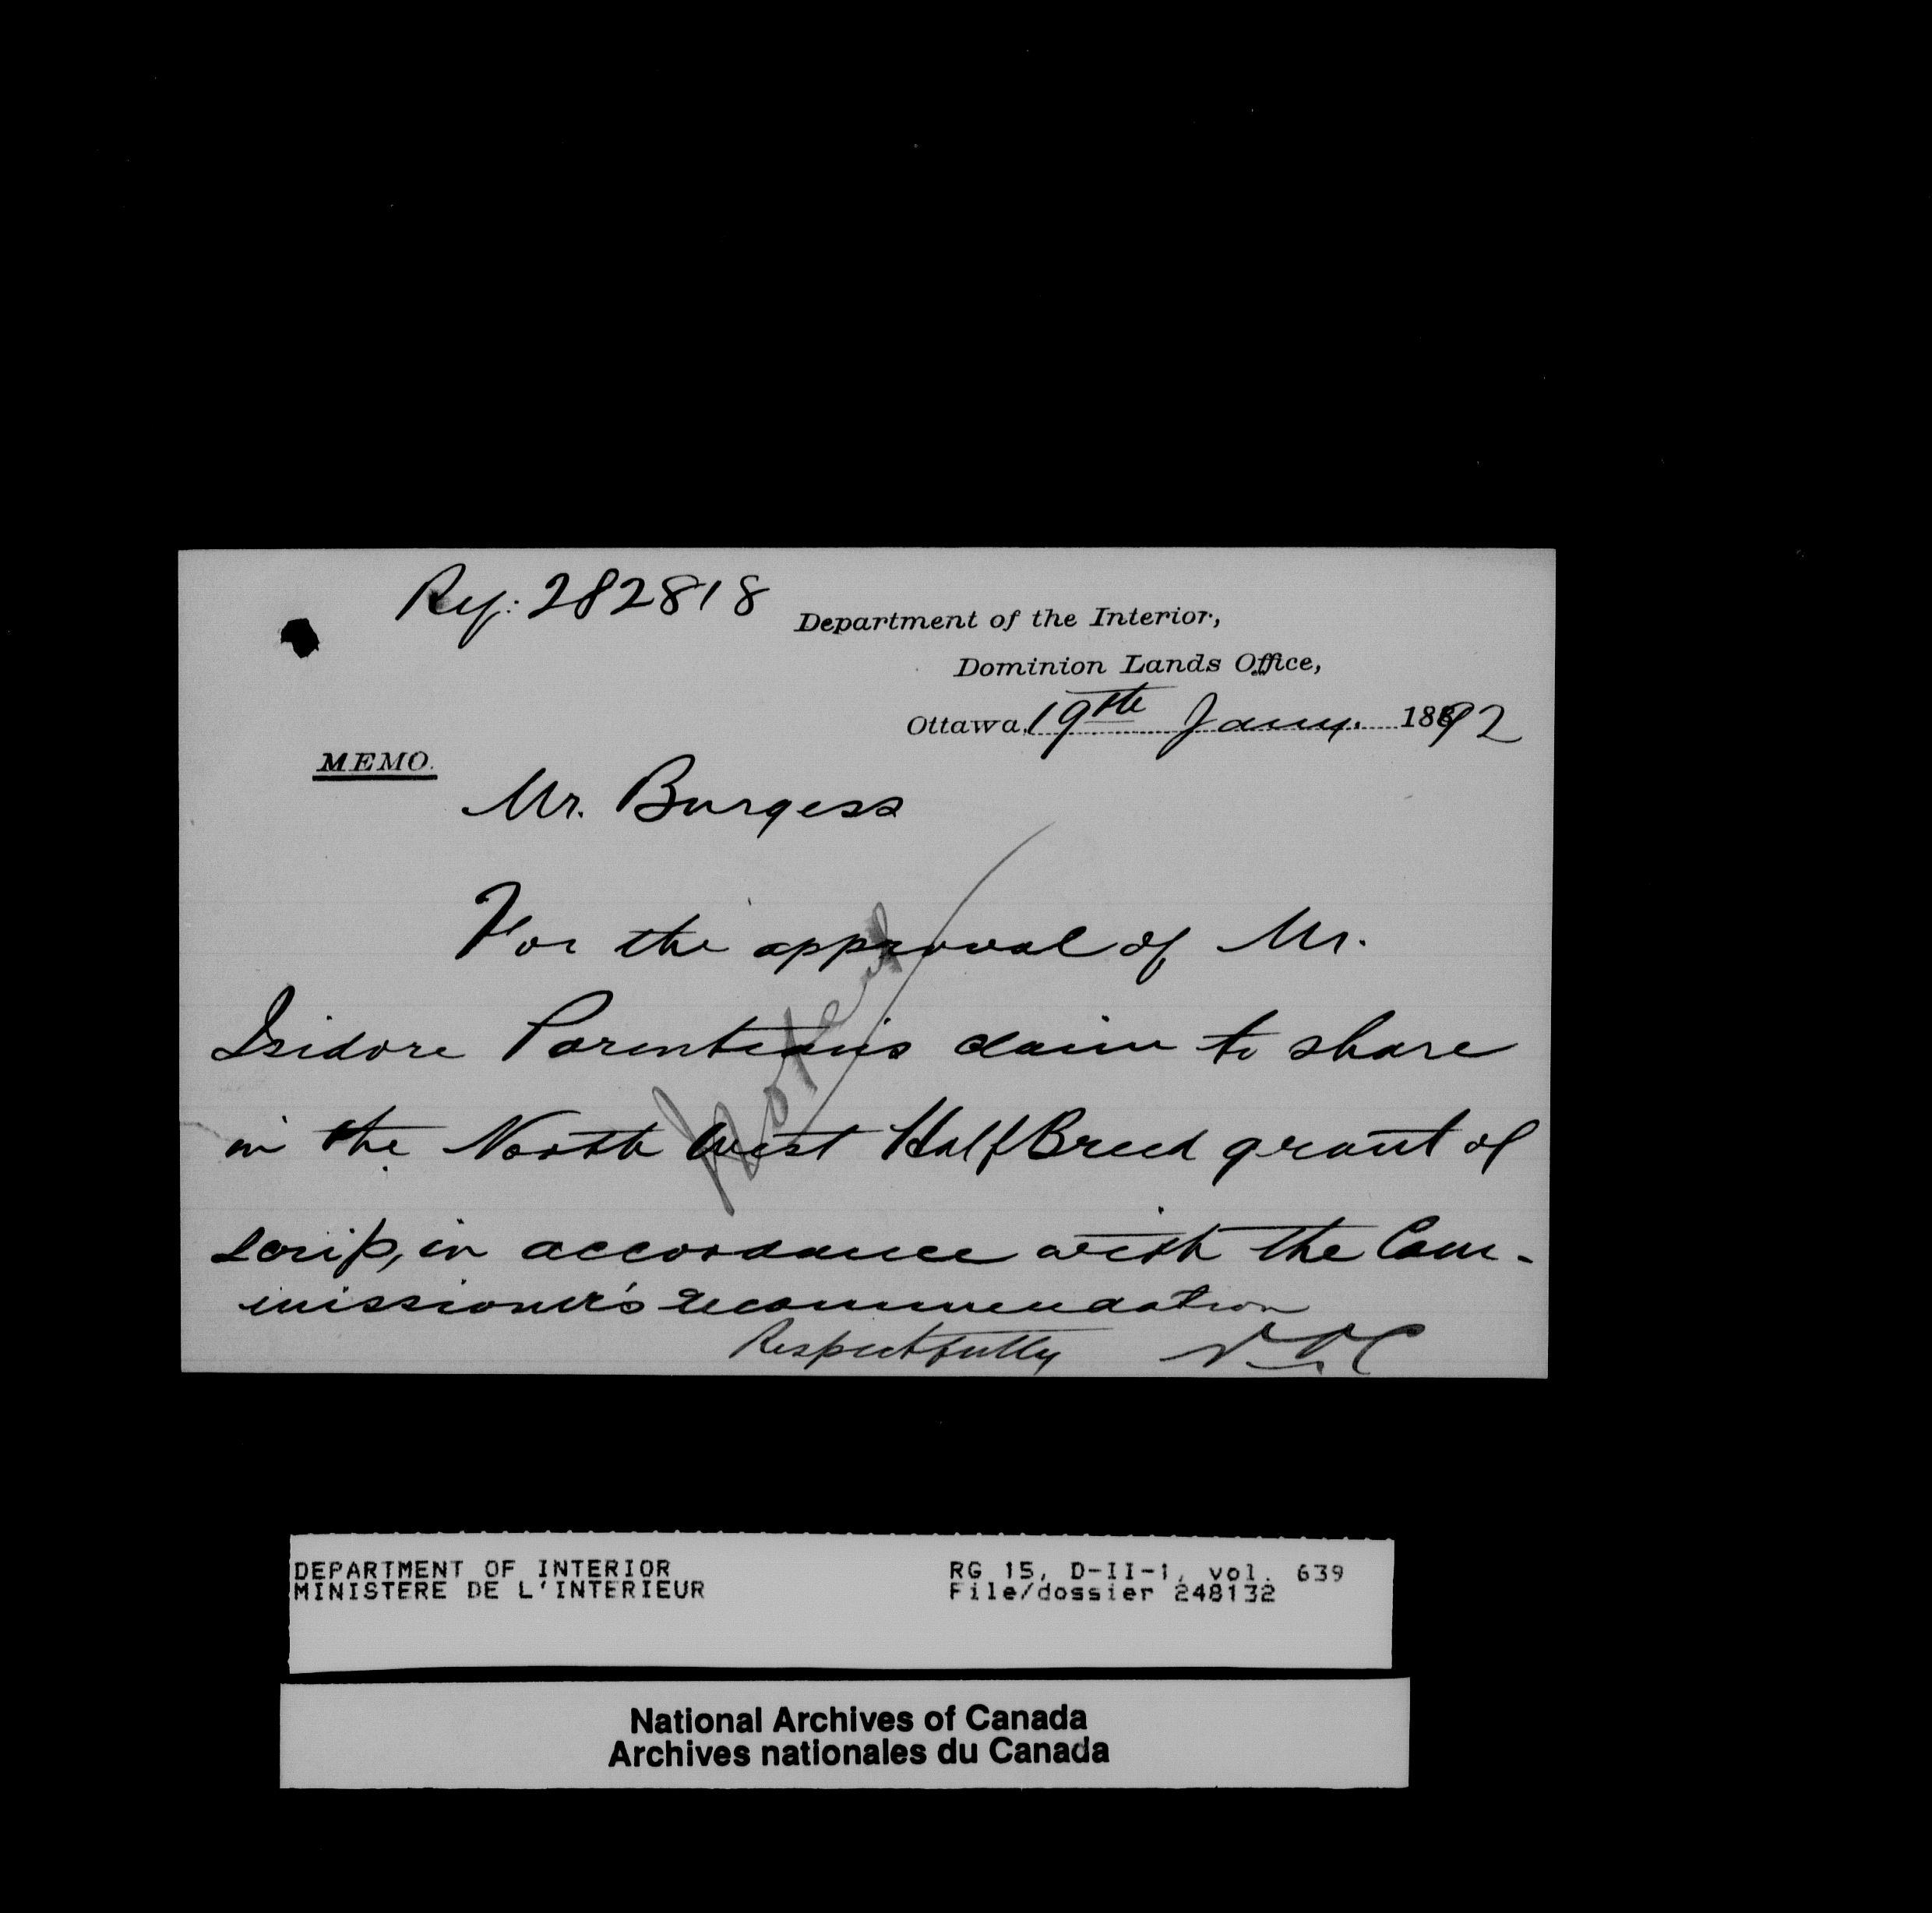 Ref: 282818
Department of the Interior,
Dominion Lands Office,
Ottawa, 19th Jany. 1892
MEMO.
Mr. Burgess
For the approval of Mr.
Isidore Parenteau's claim to share
in the North West Half Breed grant of
scrip, in accordance with the Com-
missioner's recommendation
Respectfully
DEPARTMENT OF INTERIOR
MINISTERE DE L'INTERIEUR
RG 15, D-II-1, vol. 639
File/dossier 248132
National Archives of Canada
Archives nationales du Canada